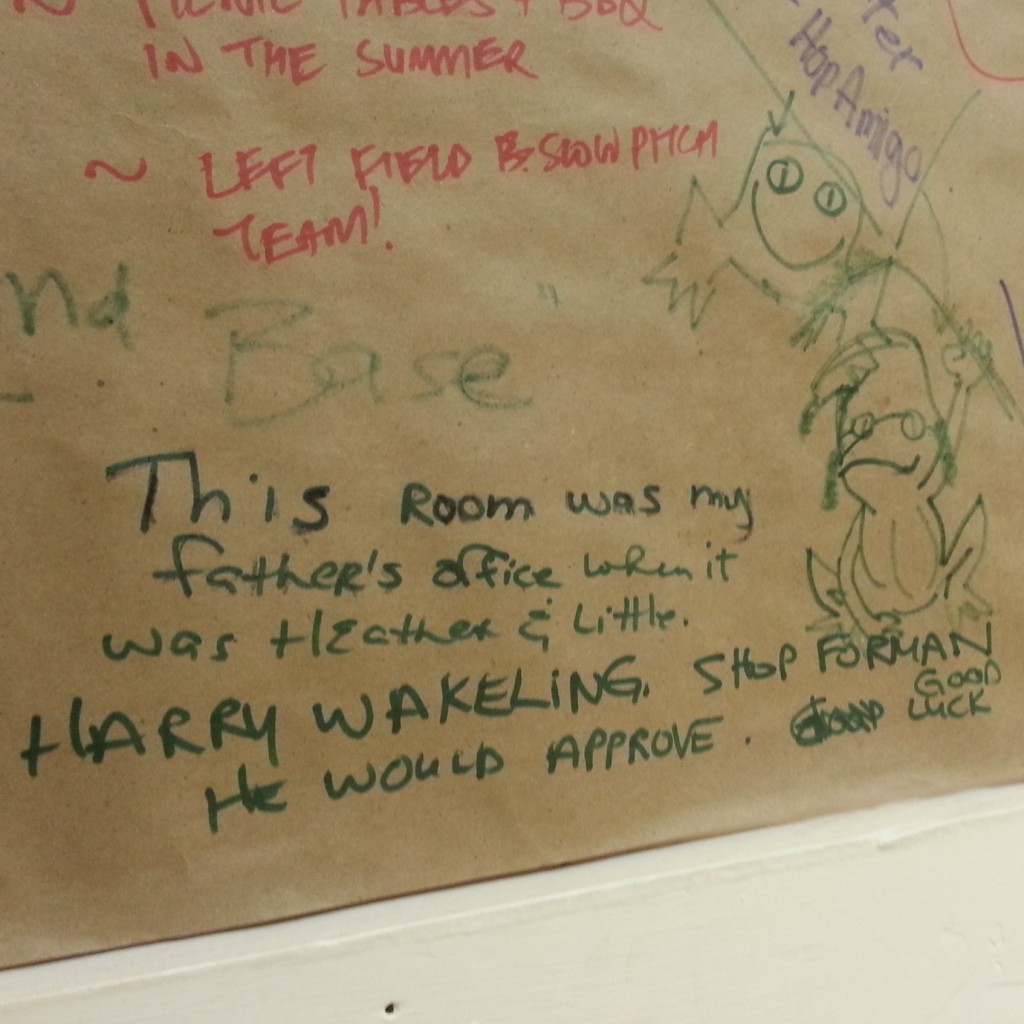 ~ PICNIC TABLES + BBQ
IN THE SUMMER
ter
HopAmigo
~ LEFT FIELD B. SLOW PITCH
TEAM!
nd Base"
This Room was my
father's office when it
was Heather & Little.
HARRY WAKELING. SHOP FORMAN
HE WOULD APPROVE. GOOD
LUCK